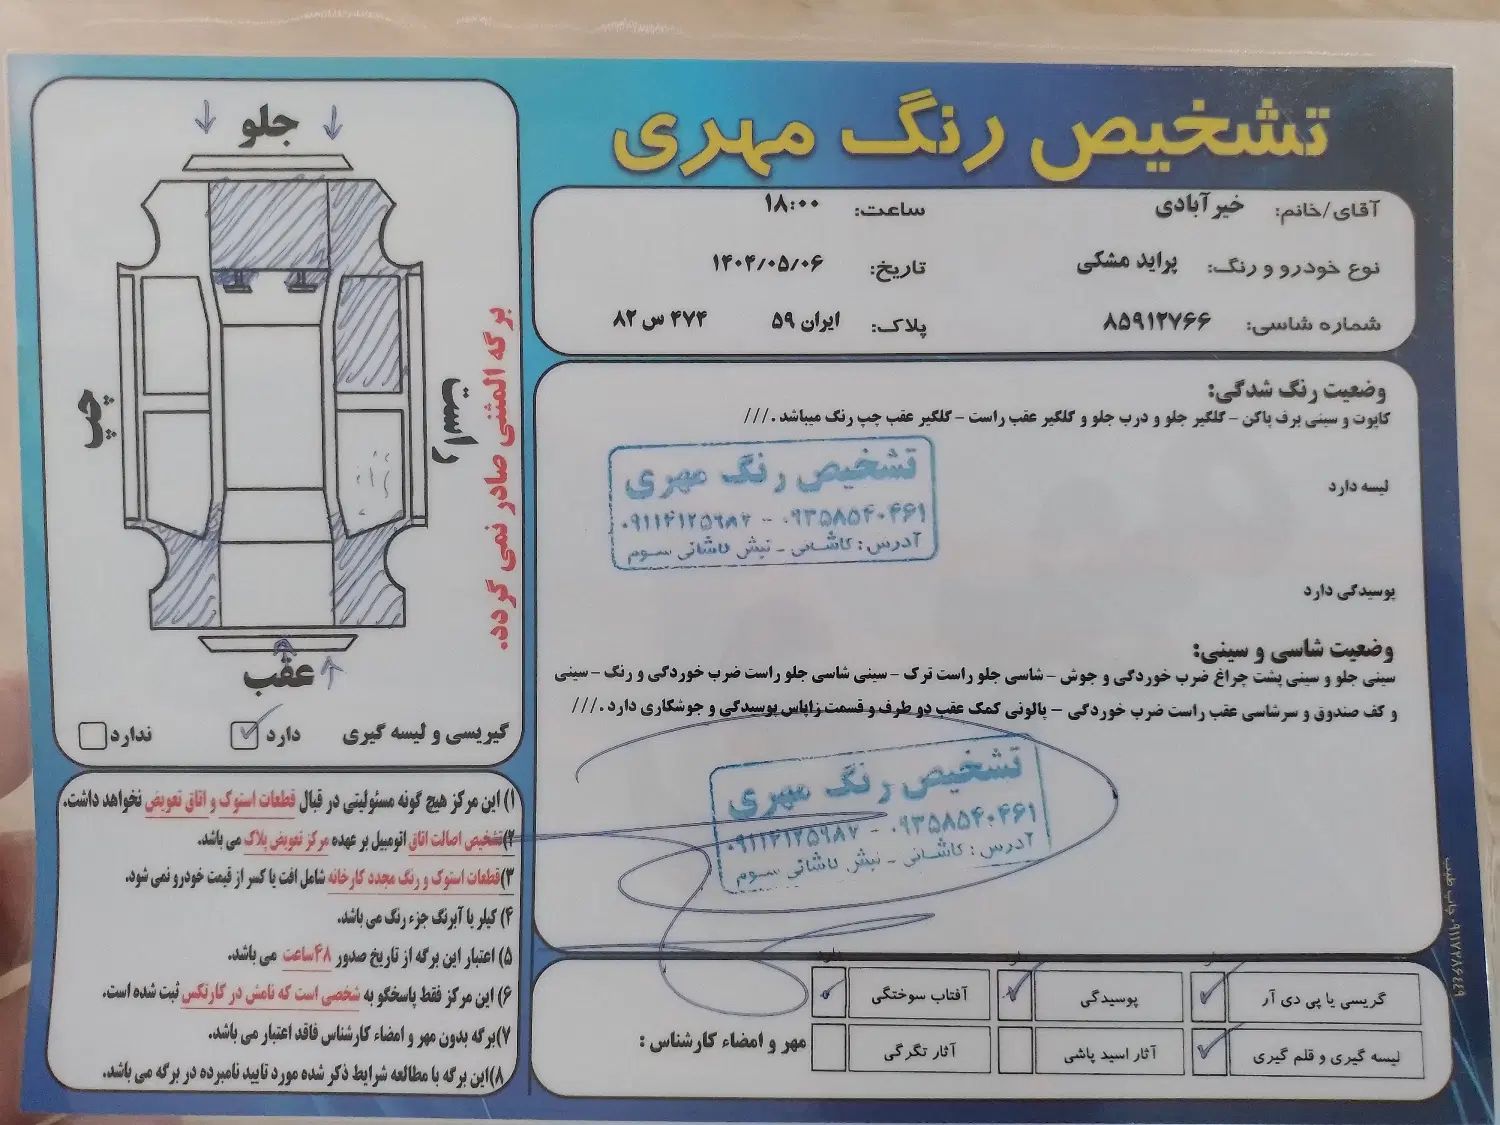 تشخیص رنگ مهری
آقای/خانم: خیرآبادی ساعت: ۱۸:۰۰
نوع خودرو و رنگ: پراید مشکی تاریخ: ۱۴۰۴/۰۵/۰۶
شماره شاسی: ۸۵۹۱۲۷۶۶ پلاک: ایران ۵۹ ۴۷۴ س ۸۲
وضعیت رنگ شدگی:
کاپوت و سینی برف پاکن - گلگیر جلو و درب جلو و گلگیر عقب راست - گلگیر عقب چپ رنگ میباشد .///
لیسه دارد
پوسیدگی دارد
تشخیص رنگ مهری
۰۹۱۱۲۱۲۵۹۸۷ - ۰۹۳۵۸۵۴۰۴۶۱
آدرس: کاشانی - نبش کاشانی سوم
وضعیت شاسی و سینی:
سینی جلو و سینی پشت چراغ ضرب خوردگی و جوش - شاسی جلو راست ترک - سینی شاسی جلو راست ضرب خوردگی و رنگ - سینی
و کف صندوق و سرشاسی عقب راست ضرب خوردگی - پالونی کمک عقب دو طرف و قسمت زاپاس پوسیدگی و جوشکاری دارد .///
تشخیص رنگ مهری
۰۹۱۱۲۱۲۵۹۸۷ - ۰۹۳۵۸۵۴۰۴۶۱
آدرس: کاشانی - نبش کاشانی سوم
گریسی یا پی دی آر پوسیدگی آفتاب سوختگی
لیسه گیری و قلم گیری آثار اسید پاشی آثار تگرگی
مهر و امضاء کارشناس :
جلو
چپ
راست
عقب
برگه المثنی صادر نمی گردد.
گیریسی و لیسه گیری دارد ندارد
۱) این مرکز هیچ گونه مسئولیتی در قبال قطعات استوک و اتاق تعویض نخواهد داشت.
۲)تشخیص اصالت اتاق اتومبیل بر عهده مرکز تعویض پلاک می باشد.
۳)قطعات استوک و رنگ مجدد کارخانه شامل افت یا کسر از قیمت خودرو نمی شود.
۴) کیلر یا آبرنگ جزء رنگ می باشد.
۵) اعتبار این برگه از تاریخ صدور ۴۸ساعت می باشد.
۶) این مرکز فقط پاسخگو به شخصی است که نامش در کارتکس ثبت شده است.
۷)برگه بدون مهر و امضاء کارشناس فاقد اعتبار می باشد.
۸)این برگه با مطالعه شرایط ذکر شده مورد تایید نامبرده در برگه می باشد.